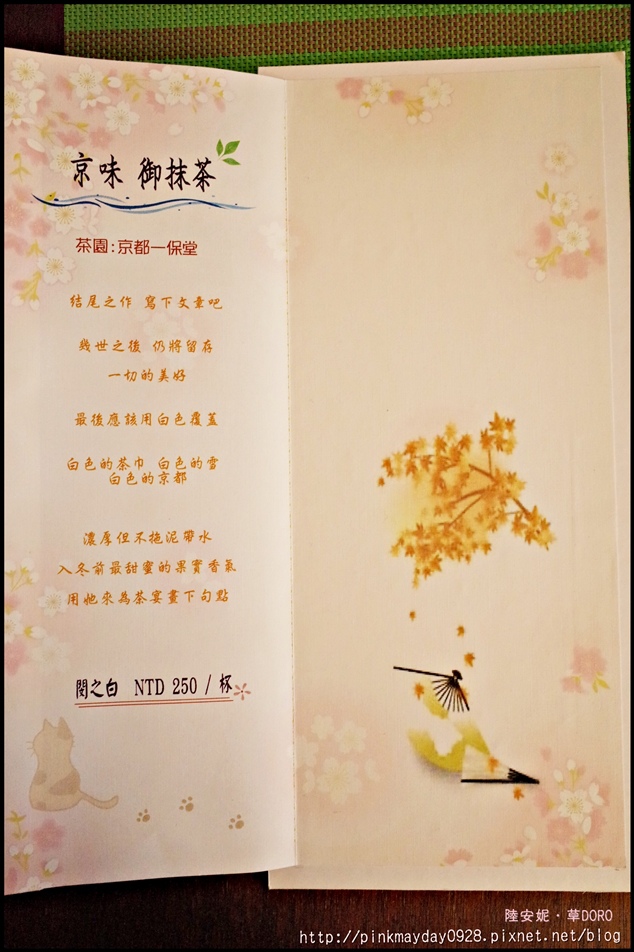 京味 御抹茶
茶園:京都一保堂
結尾之作 寫下文章吧
幾世之後 仍將留存
一切的美好
最後應該用白色覆蓋
白色的茶巾 白色的雪
白色的京都
濃厚但不拖泥帶水
入冬前最甜蜜的果實香氣
用她來為茶宴畫下句點
関之白 NTD 250 / 杯
陸安妮·草DORO
http://pinkmayday0928.pixnet.net/blog